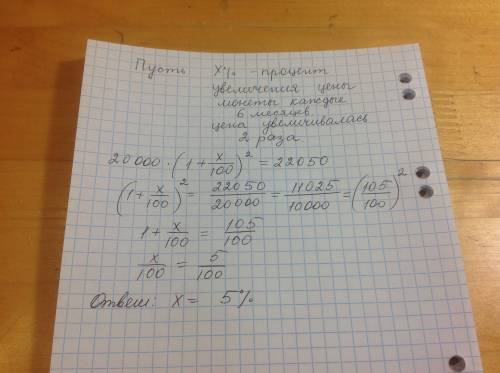 Пусть x% - процент
увеличения цены
монеты каждые
6 месяцев
цена увеличивалась
2 раза
20000 · (1 + x/100)² = 22050
(1 + x/100)² = 22050/20000 = 11025/10000 = (105/100)²
1 + x/100 = 105/100
x/100 = 5/100
Ответ: x = 5%